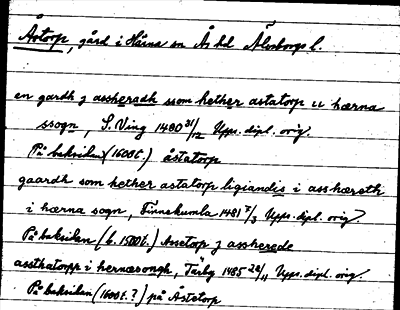 Åstorp, gård i Härna sn Ås hd Älvsborgs l.
en gardh j assheradh ssom hether astatorp u hærna
ssogn, S. Ving 1480 31/12 Upps. dipl. orig.
På baksidan (1600t.) åstatorp
gaardh som hether astatorp ligiandis i asshæreth
i hærna sogn, Finnekumla 1481 7/3 Upps. dipl. orig.
På baksidan (b. 1500t.) Assetorp j assherede
assthatorpp i hernæsongh, Tärby 1485 28/11 Upps. dipl. orig.
På baksidan (1600t.?) på Åstetorp